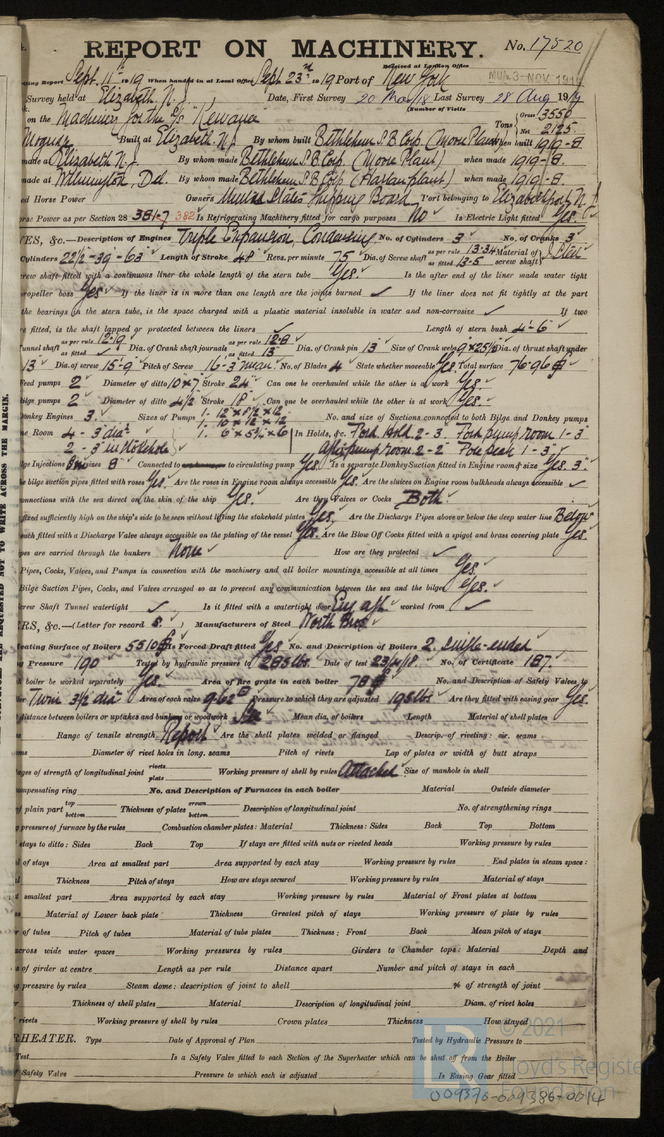 REPORT ON MACHINERY. No. 17520
Received at London Office
MON. 3-NOV.1919
Writing Report Sept. 11th 1919 When handed in at Local Office Sept 23rd 1919 Port of New York
Survey held at Elizabeth N.J. Date, First Survey 20 Mar/18 Last Survey 28 Aug 1919
(Number of Visits
on the Machinery for the S/S Kewanee Tons Gross 3550 Net 2125
Built at Elizabeth N.J. By whom built Bethlehem S.B. Corp. (Moore Plant) when built 1919-8
made at Elizabeth N.J. By whom made Bethlehem S.B. Corp (Moore Plant) when made 1919-8
made at Wilmington, Del. By whom made Bethlehem S.B. Corp (Harlan plant) when made 1919-8
Horse Power Owners United States Shipping Board Port belonging to Elizabethport N.J.
Horse Power as per Section 28 381.7 382 Is Refrigerating Machinery fitted for cargo purposes No Is Electric Light fitted Yes
ES, &c.—Description of Engines Triple Expansion, Condensing No. of Cylinders 3 No. of Cranks 3
Cylinders 22½-39-63 Length of Stroke 48 Revs. per minute 75 Dia. of Screw shaft as per rule 13.34 as fitted 13.5 Material of screw shaft Steel
screw shaft fitted with a continuous liner the whole length of the stern tube Yes. Is the after end of the liner made water tight
propeller boss Yes If the liner is in more than one length are the joints burned ✓ If the liner does not fit tightly at the part
the bearings in the stern tube, is the space charged with a plastic material insoluble in water and non-corrosive ✓ If two
fitted, is the shaft lapped or protected between the liners ✓ Length of stern bush 4-6
Tunnel shaft as per rule 12.19 as fitted ✓ Dia. of Crank shaft journals as per rule 12.8 as fitted 13 Dia. of Crank pin 13 Size of Crank webs 9x25½ Dia. of thrust shaft under
13 Dia. of screw 15-9 Pitch of Screw 16-3 mean. No. of Blades 4 State whether moveable Yes Total surface 76.96
Feed pumps 2 Diameter of ditto 10x7 Stroke 24 Can one be overhauled while the other is at work Yes.
Bilge pumps 2 Diameter of ditto 4½ Stroke 18 Can one be overhauled while the other is at work Yes.
Donkey Engines 3. Sizes of Pumps 1- 12x8½x12 No. and size of Suctions connected to both Bilge and Donkey pumps
1- 10x12x12
Room 4 - 3 dia 1. 6x5¾x6 In Holds, &c. Ford Hold 2-3 Ford pump room 1-3
2 - 3 in stokehold After pump room 2-2 Fore peak 1-3
Bilge Injections sizes 8 Connected to to circulating pump Yes. Is a separate Donkey Suction fitted in Engine room & size Yes. 3
the bilge suction pipes fitted with roses Yes. Are the roses in Engine room always accessible Yes. Are the sluices on Engine room bulkheads always accessible ✓
connections with the sea direct on the skin of the ship Yes. Are they Valves or Cocks Both
fixed sufficiently high on the ship's side to be seen without lifting the stokehold plates Yes. Are the Discharge Pipes above or below the deep water line Below
each fitted with a Discharge Valve always accessible on the plating of the vessel Yes. Are the Blow Off Cocks fitted with a spigot and brass covering plate Yes.
pipes are carried through the bunkers None How are they protected ✓
Pipes, Cocks, Valves, and Pumps in connection with the machinery and all boiler mountings accessible at all times Yes.
Bilge Suction Pipes, Cocks, and Valves arranged so as to prevent any communication between the sea and the bilges Yes.
Screw Shaft Tunnel watertight ✓ Is it fitted with a watertight door Eng aft worked from ✓
RS, &c.—(Letter for record S.) Manufacturers of Steel Worth Bros
Heating Surface of Boilers 5510 Is Forced Draft fitted Yes No. and Description of Boilers 2. Single-ended
Pressure 190 Tested by hydraulic pressure to 285 lbs Date of test 23/4/18 No. of Certificate 187.
boiler be worked separately Yes. Area of fire grate in each boiler 78 No. and Description of Safety Valves to
Twin 3½ dia Area of each valve 9.62 Pressure to which they are adjusted 195 lbs Are they fitted with easing gear Yes.
distance between boilers or uptakes and bunkers or woodwork Mean dia. of boilers Length Material of shell plates
Range of tensile strength Report Are the shell plates welded or flanged Descrip. of riveting: cir. seams
Diameter of rivet holes in long. seams Pitch of rivets Lap of plates or width of butt straps
ages of strength of longitudinal joint rivets plate Working pressure of shell by rules Attached Size of manhole in shell
compensating ring No. and Description of Furnaces in each boiler Material Outside diameter
of plain part top bottom Thickness of plates crown bottom Description of longitudinal joint No. of strengthening rings
pressure of furnace by the rules Combustion chamber plates: Material Thickness: Sides Back Top Bottom
stays to ditto: Sides Back Top If stays are fitted with nuts or riveted heads Working pressure by rules
of stays Area at smallest part Area supported by each stay Working pressure by rules End plates in steam space:
Thickness Pitch of stays How are stays secured Working pressure by rules Material of stays
smallest part Area supported by each stay Working pressure by rules Material of Front plates at bottom
Material of Lower back plate Thickness Greatest pitch of stays Working pressure of plate by rules
of tubes Pitch of tubes Material of tube plates Thickness: Front Back Mean pitch of stays
across wide water spaces Working pressures by rules Girders to Chamber tops: Material Depth and
of girder at centre Length as per rule Distance apart Number and pitch of stays in each
pressure by rules Steam dome: description of joint to shell % of strength of joint
Thickness of shell plates Material Description of longitudinal joint Diam. of rivet holes
rivets Working pressure of shell by rules Crown plates Thickness How stayed
RHEATER. Type Date of Approval of Plan Tested by Hydraulic Pressure to
Test Is a Safety Valve fitted to each Section of the Superheater which can be shut off from the Boiler
of Safety Valve Pressure to which each is adjusted Is Easing Gear fitted
REQUESTED NOT TO WRITE ACROSS THE MARGIN.
LR
© 2021
Lloyd's Register
Foundation
009376-009386-0014